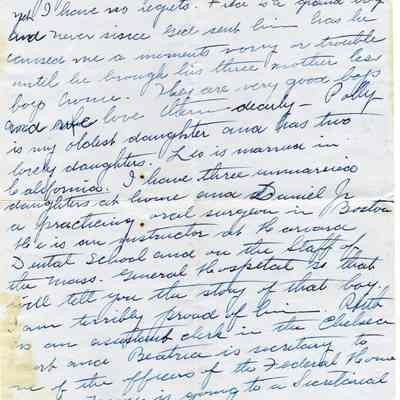 yet I have no regrets. Fike is a grand boy
and never since God sent him has he
caused me a moments worry or trouble
until he brough his three mother less
boys home. They are very good boys
and we love them dearly - Polly
is my oldest daughter and has two
lovely daughters. Leo is married in
California. I have three unmarried
daughters at home and Daniel Jr
a practicing oral surgeon in Boston
He is an instructor at Harvard
Dental School and on the Staff of
the Mass. General Hospital so that
will tell you the story of that boy.
I am terribly proud of him. Ruth
is an assistant clerk in the Chelsea
and Beatrice is secretary to
of the officers of the Federal Home
is going to a Secretarial